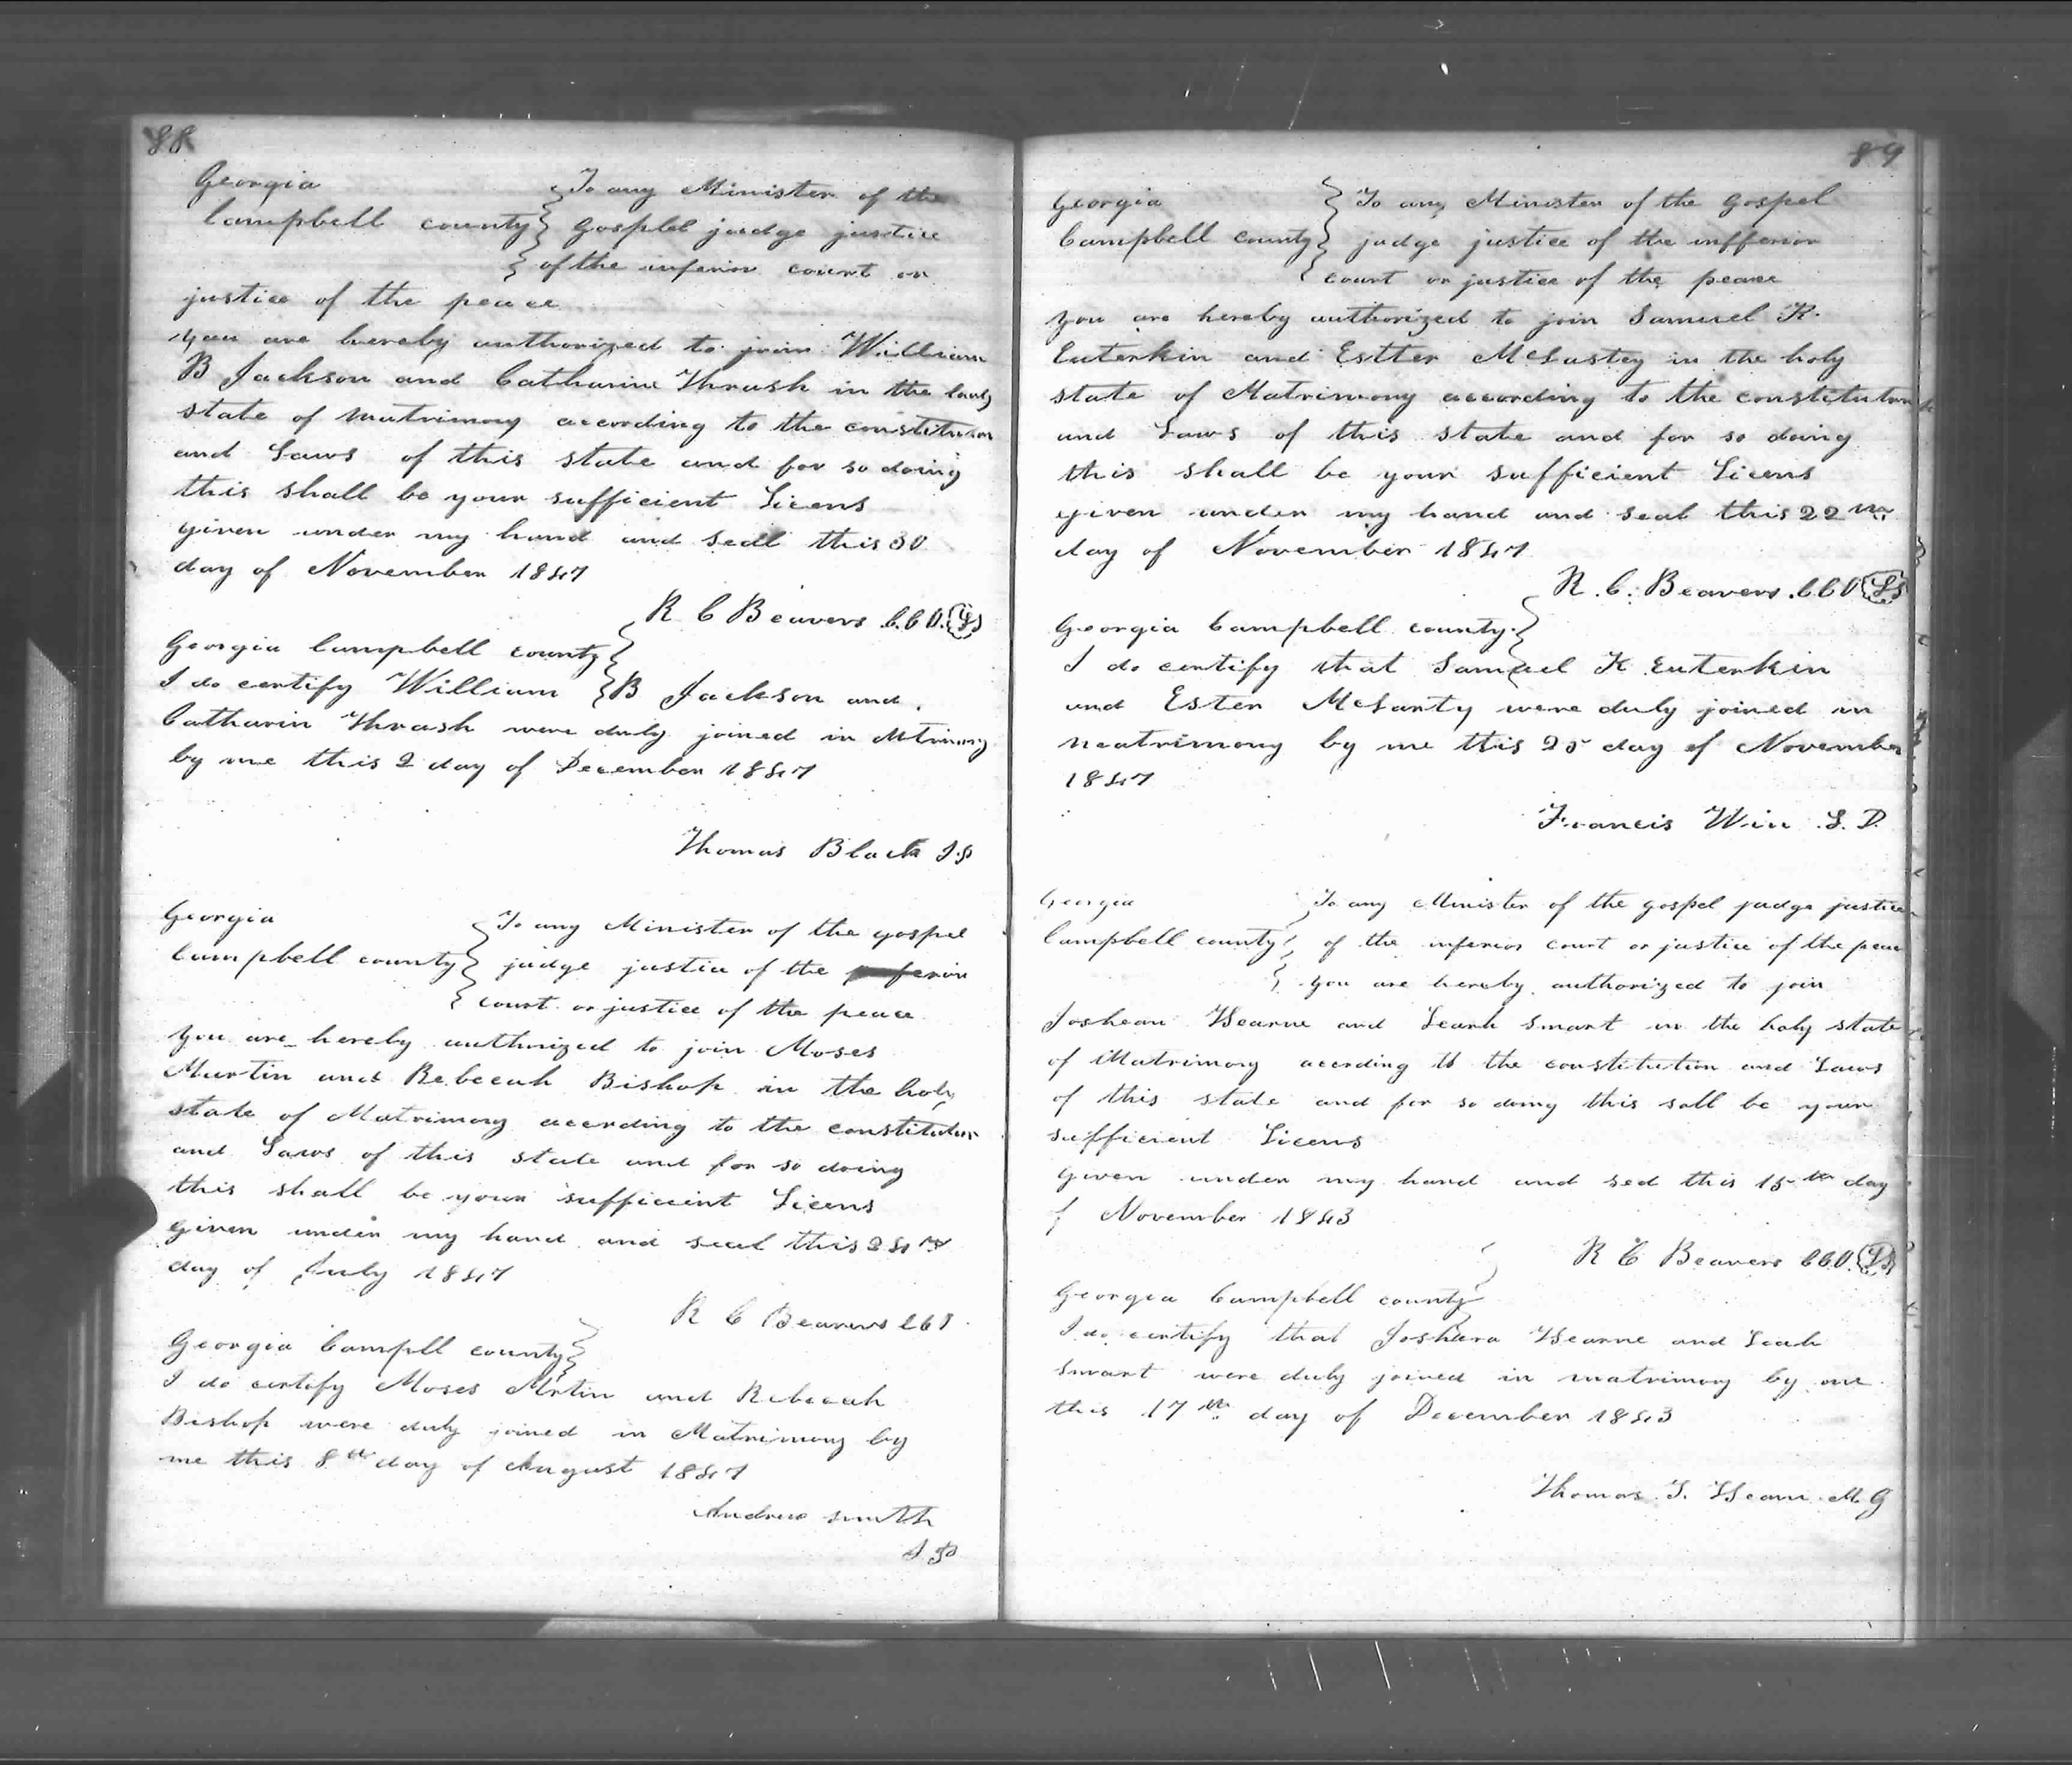 88
Georgia
Campbell county
To any Minister of the
gosplel judge justice
of the inferior court or
justice of the peace
you are hereby authorized to join William
B Jackson and Catharine Thrash in the
state of matrimony according to the constitution
and Laws of this state and for so doing
this shall be your sufficient Licens
given under my hand and seal this 30
day of November 1847
R C Beavers C.C.O. LS
Georgia Campbell county
I do certify William B Jackson and
Catharin Thrash were duly joined in
by me this 2 day of December 1847
Thomas Black J.P
Georgia
Campbell county
To any Minister of the gospel
judge justice of the
court or justice of the peace
you are hereby authorized to join Moses
Martin and Rebecah Bishop in the holy
state of Matrimony according to the constitution
and Laws of this state and for so doing
this shall be your sufficient Licens
given under my hand and seal this 24
day of July 1847
R C Beavers
Georgia Campll county
I do certify Moses Mrtin and Rebecah
Bishop were duly joined in Matrimony by
me this 8th day of August 1847
Andrew smith
J P
89
Georgia
Campbell county
To any Minister of the gospel
judge justice of the infferior
court or justice of the peace
you are hereby authorized to join Samuel K.
Euterkin and Estter McLasty in the holy
state of Matrimony according to the constitution
and Laws of this state and for so doing
this shall be your sufficient Licens
given under my hand and seal this 22 nd
day of November 1847
R. C. Beavers. C C O LS
Georgia Campbell county
I do certify that Samuel K Euterkin
and Ester McLarty were duly joined in
matrimony by me this 25 day of November
1847
Francis Win L. D.
Georgia
Campbell county
To any Minister of the gospel judge justice
of the inferior court or justice of the peac
you are hereby authorized to join
Joshean Hearne and Leanh Smart in the holy state
of Matrimony acording to the constitution and Laws
of this state and for so doing this sall be your
sufficient Licens
given under my hand and sed this 15th day
f November 1843
R C Beavers C C O. LS
Georgia Campbell county
I do certify that Joshura Hearne and Leah
Smart were duly joined in matrimony by me
this 17th day of December 1843
Thomas. J. Hearn M. G